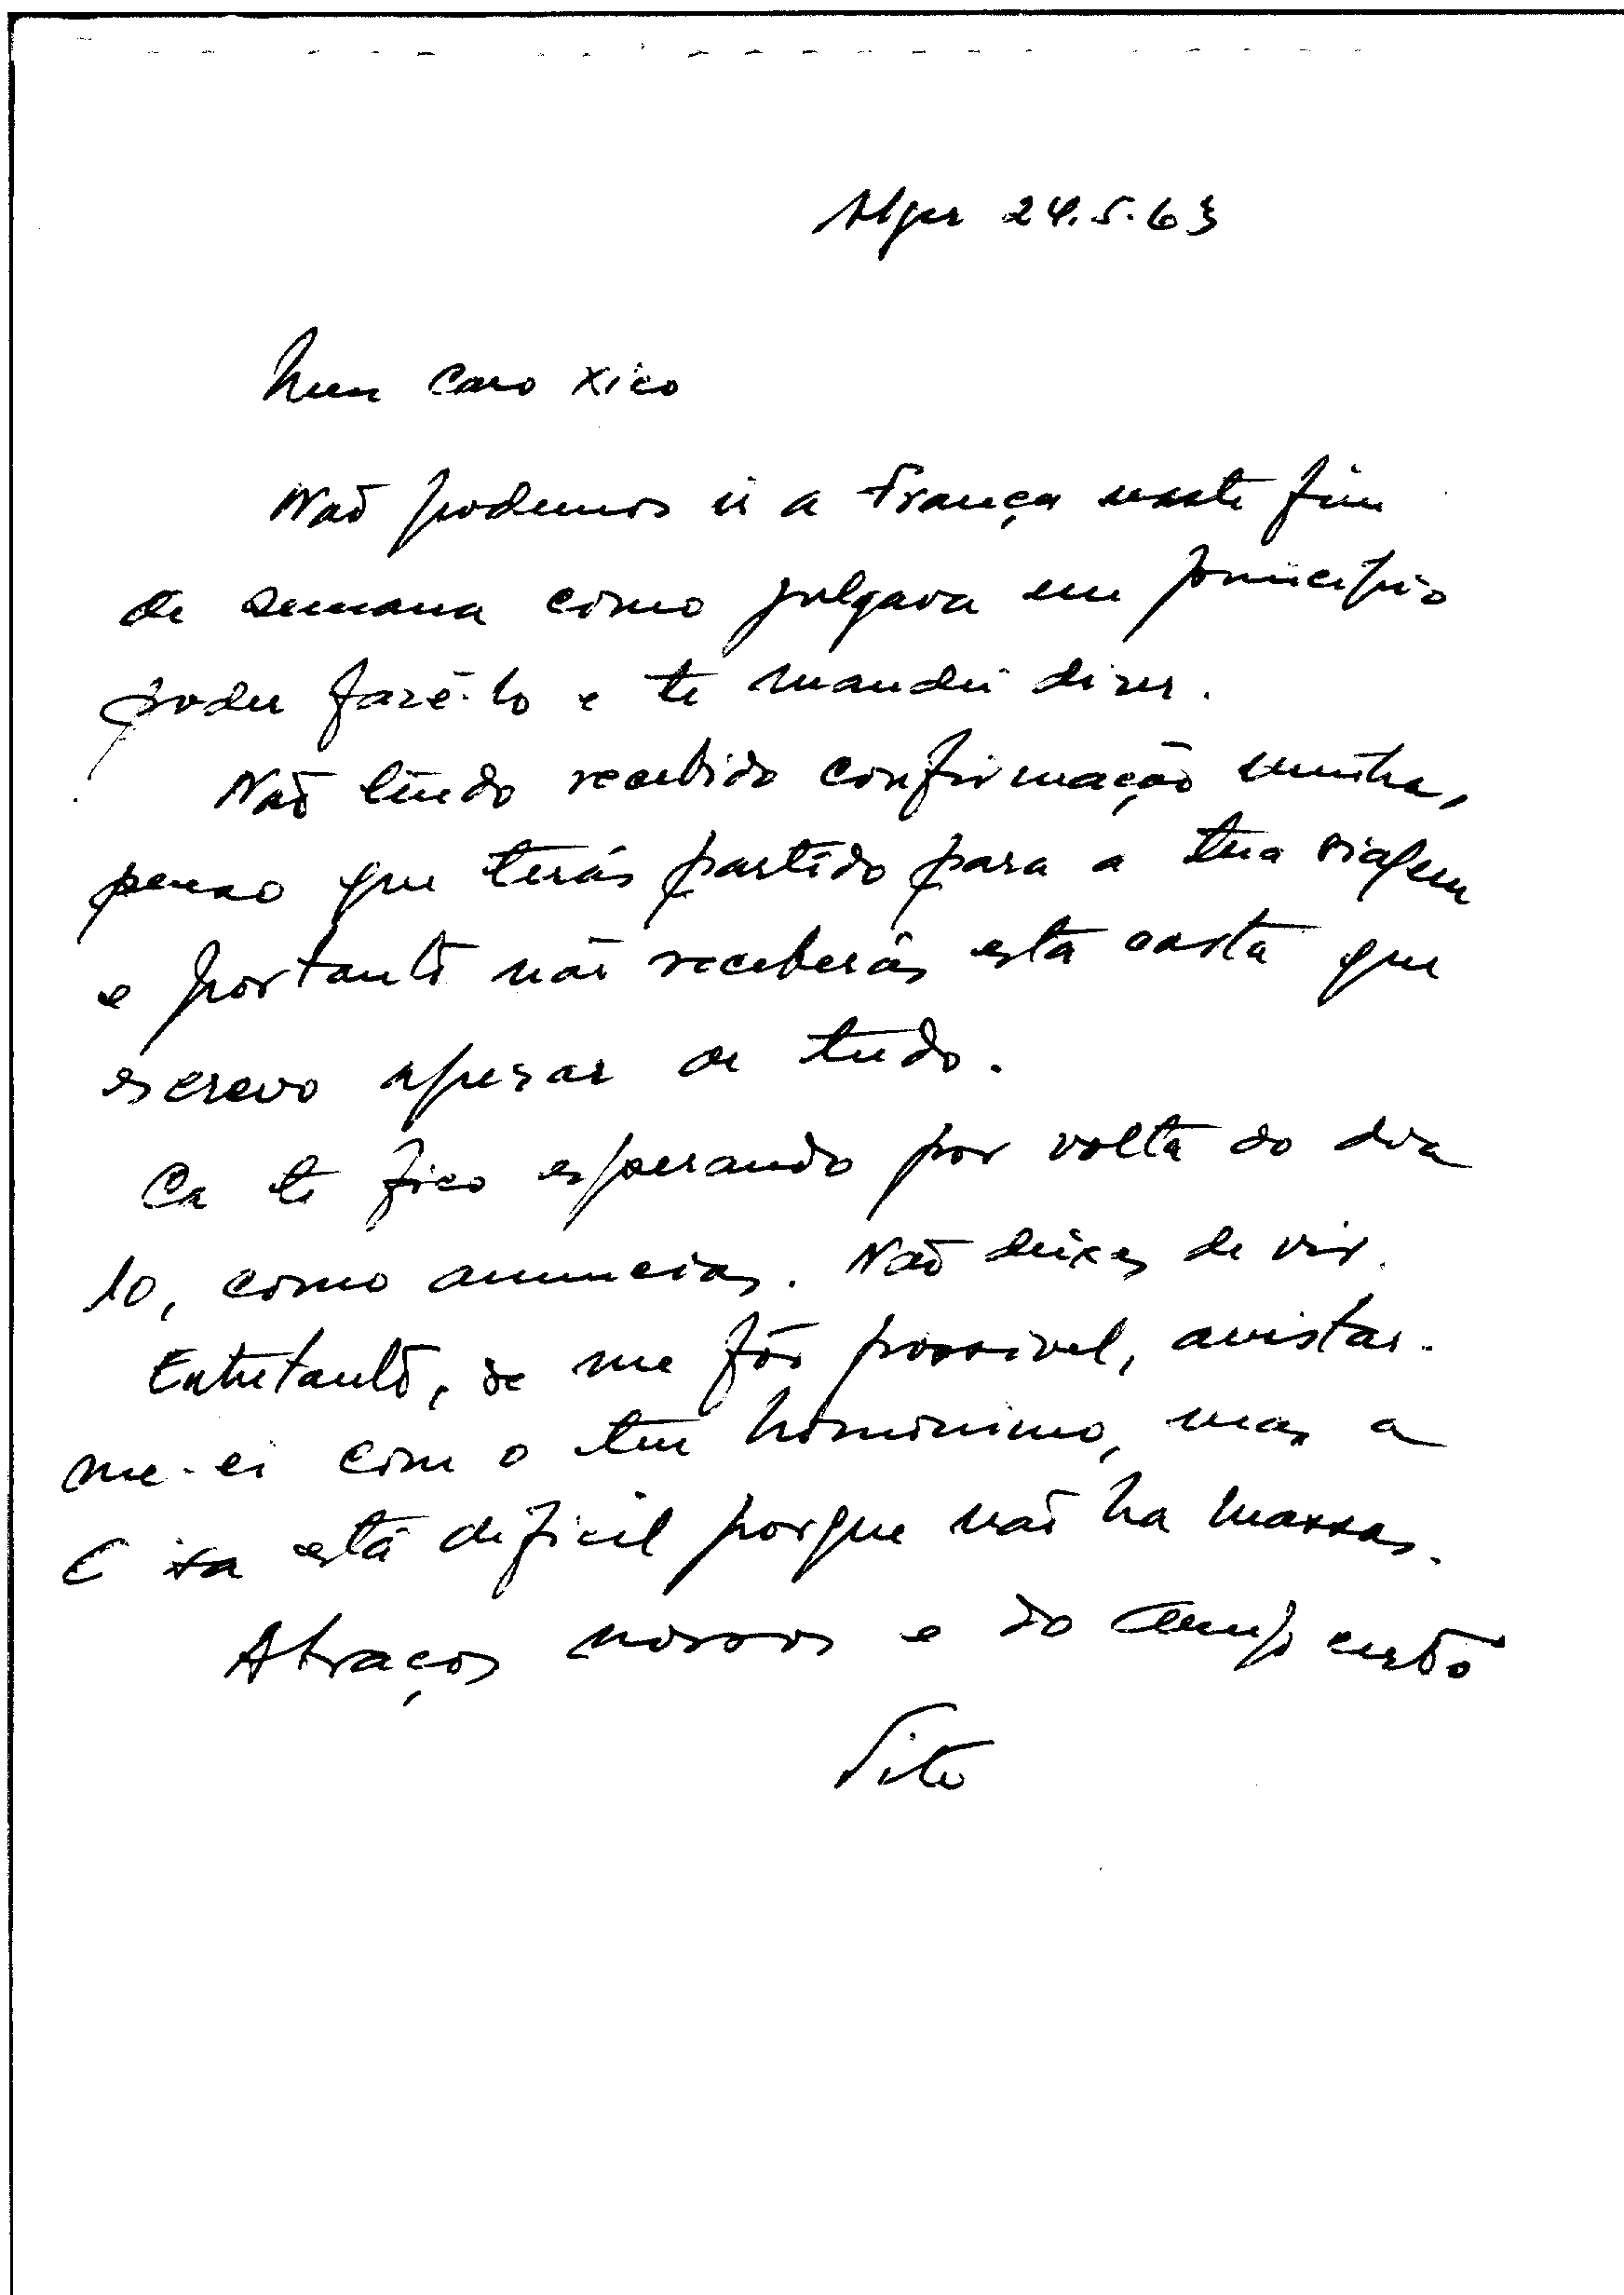 Alger 24.5.63
Meu caro Xico
Não podemos ir a França neste fim
de semana como julgava em principio
poder fazê-lo e te mandei dizer.
Não tendo recebido confirmação minha,
penso que terás partido para a tua viagem
e portanto não receberás esta carta que
escrevo apesar de tudo.
Ca te fico esperando por volta do dia
10, como anuncias. Não deixes de vir.
Entretanto, se me fôr possivel, avistar-
me-ei com o teu homonimo, mas a
coisa está dificil porque não ha massas.
Abraços nossos e do